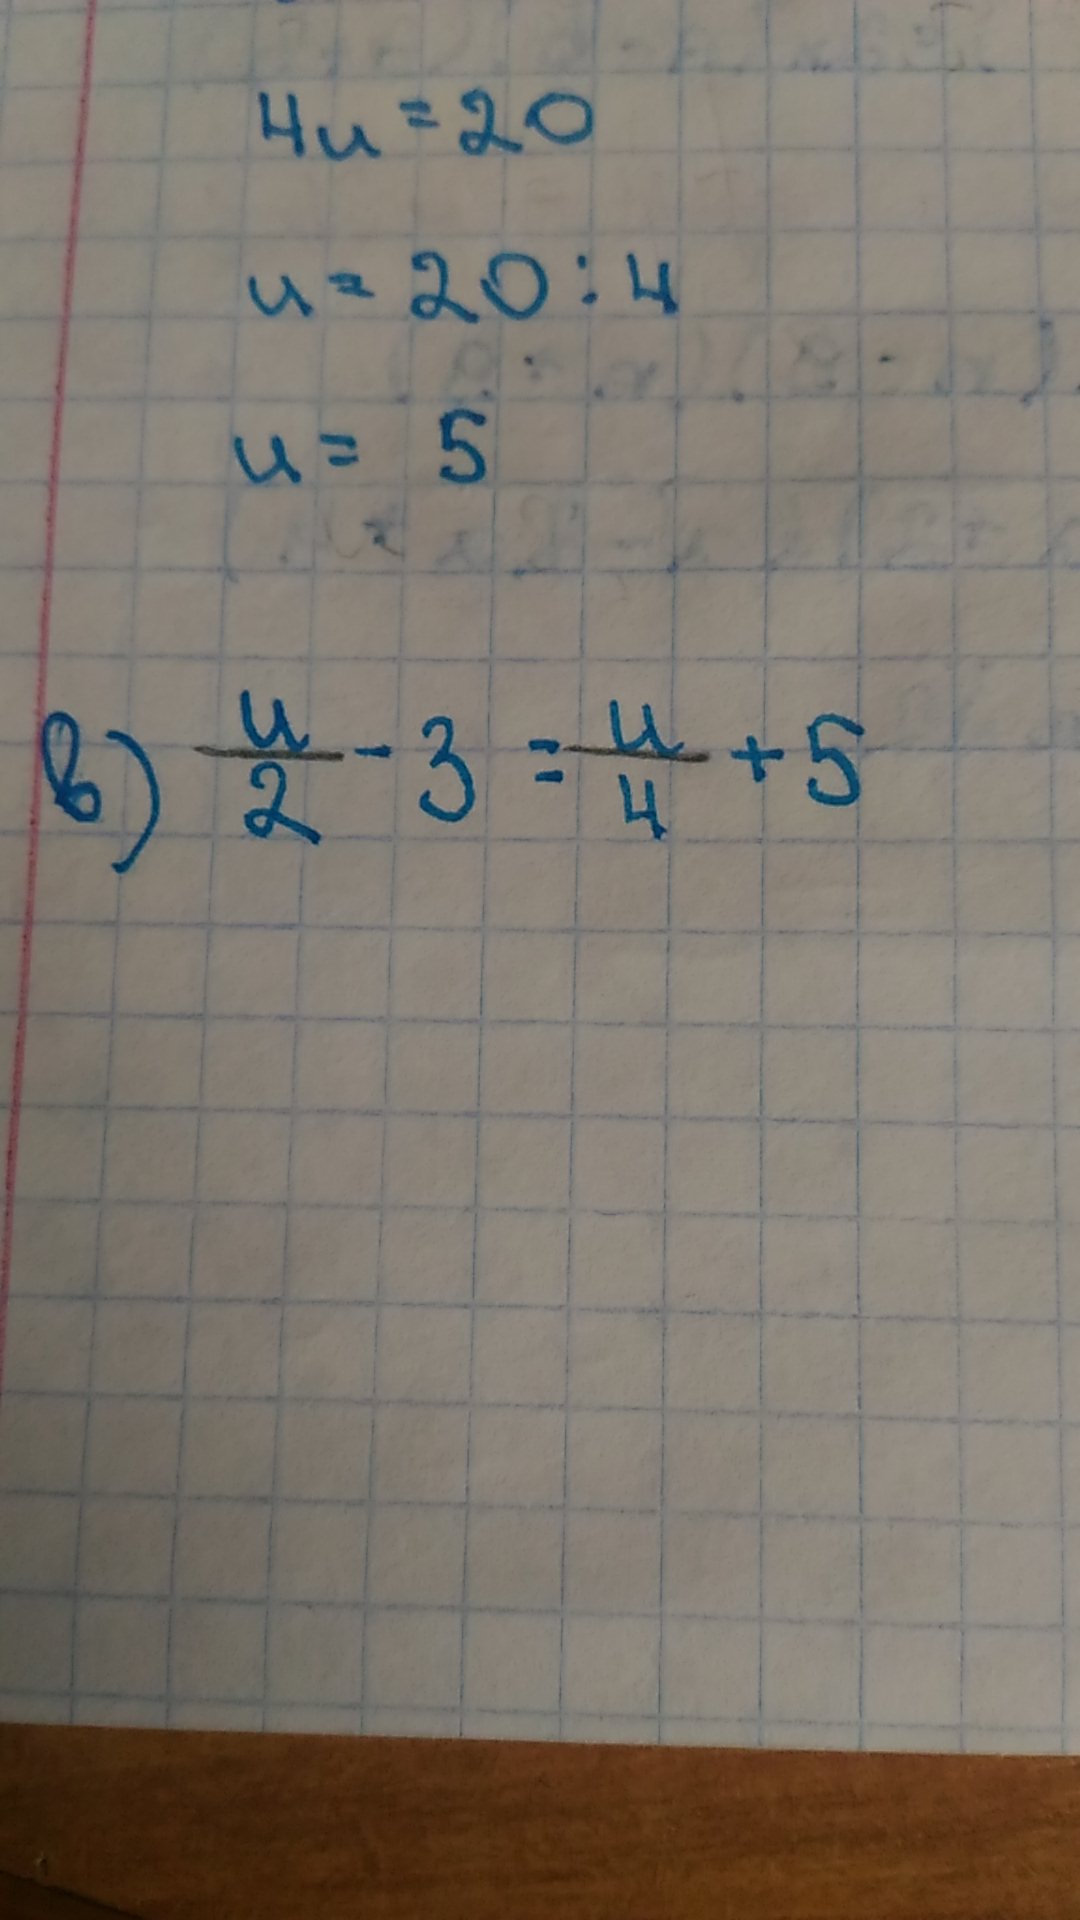 4u = 20
u = 20 : 4
u = 5
в) u/2 - 3 = u/4 + 5